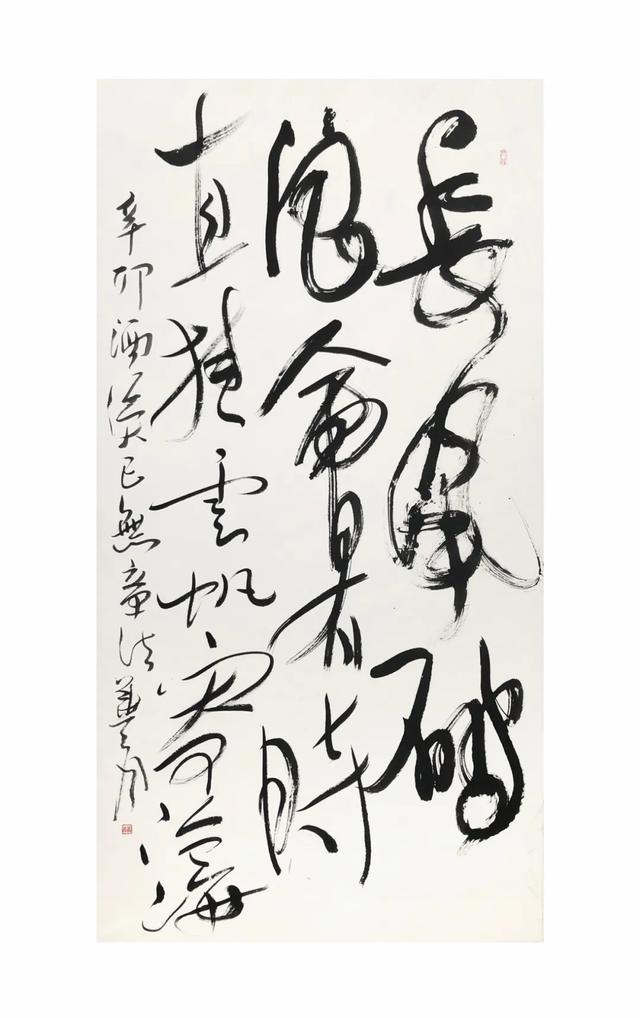 長風破
浪會有時
直掛雲帆濟滄海
辛卯酒已無章法